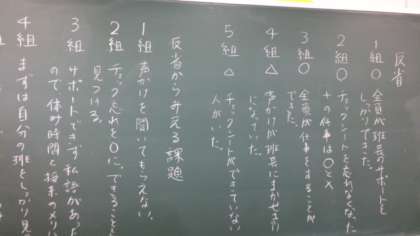 反省
1組○ 全員が班長のサポートを
しっかりできた。
2組○ チェックシートを忘れなくなった
＋の仕事は○と×
3組○ 全員が仕事をすることが
できた。
4組△ 声かけが班長にまかせきり
になっていた。
5組△ チェックシートができていない
人がいた。
反省からみえる課題
1組 声かけを聞いてもらえない。
2組 チェック忘れを0に。できることを
見つける。
3組 サポートできず私語があった
ので休み時間と授業のメリ
4組 まずは自分の班をしっかり見